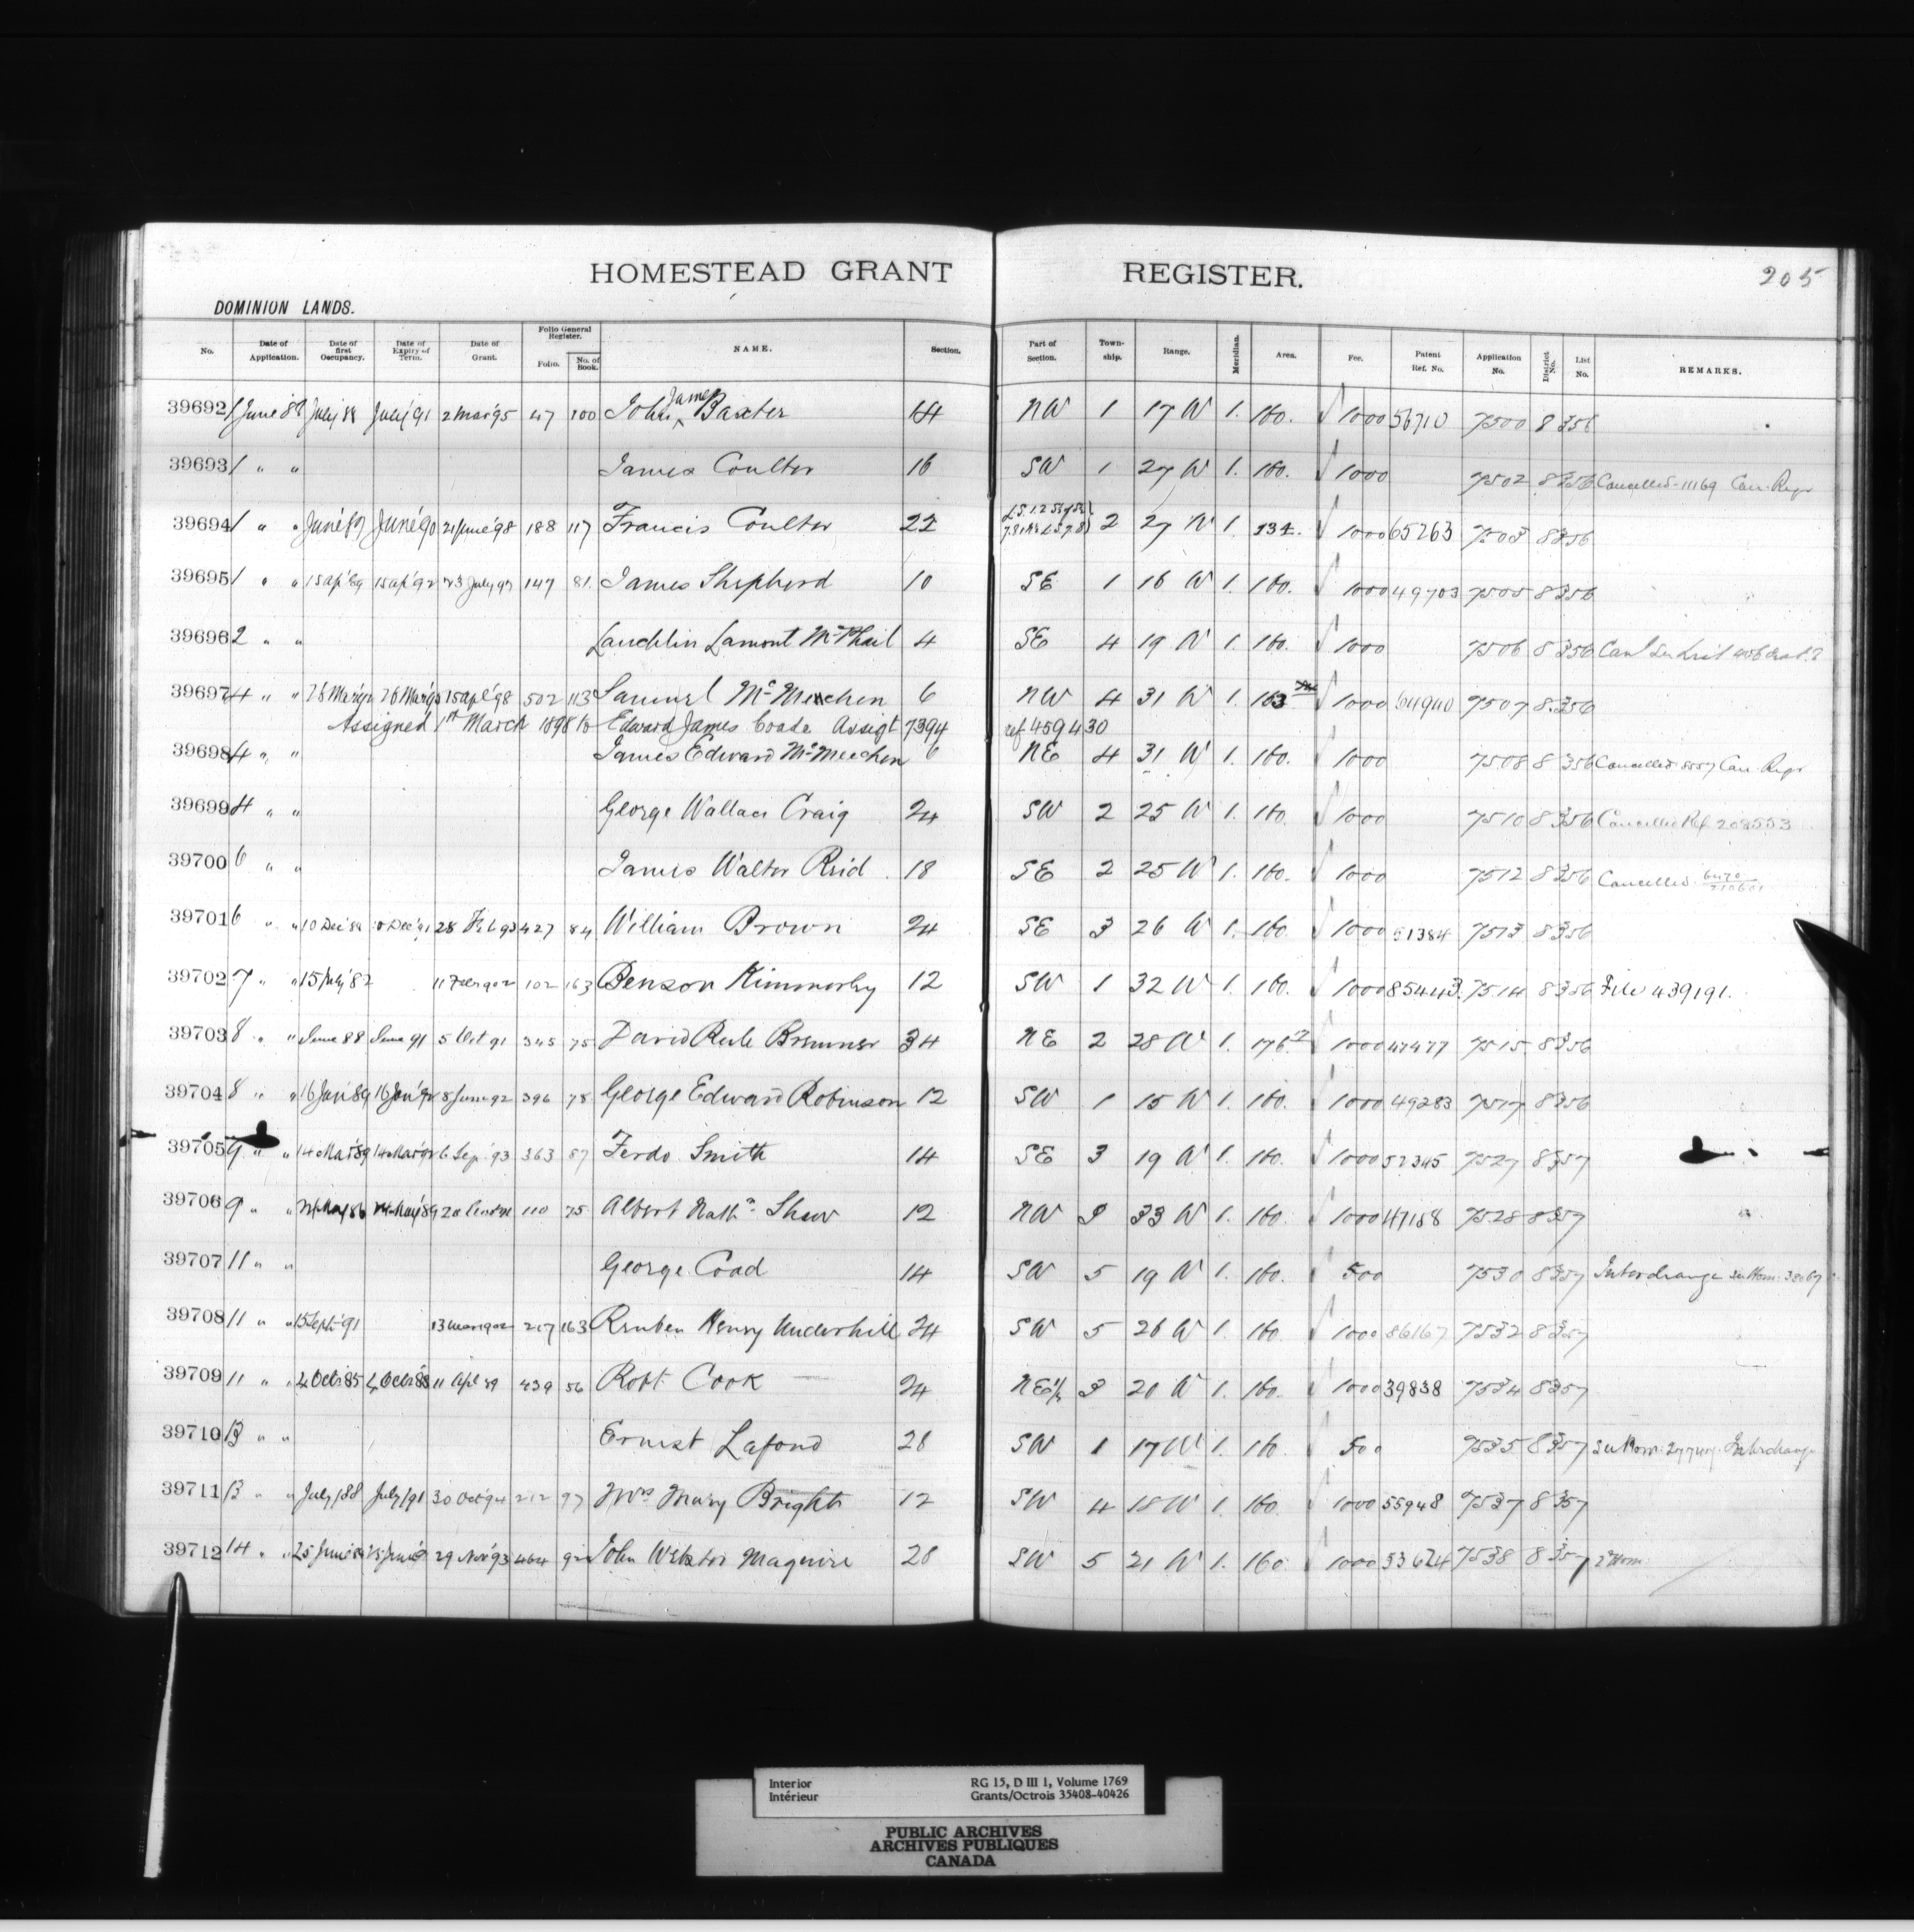 HOMESTEAD GRANT REGISTER. 205
DOMINION LANDS.
No. Date of Application. Date of first Occupancy. Date of Expiry of Term. Date of Grant. Folio General Register. Folio. No. of Book. NAME. Section. Part of Section. Township. Range. Meridian. Area. Fee. Patent Ref. No. Application No. District No. List No. REMARKS.
39692 1 June 88 July 88 July '91 2 Mar '95 47 100 John James Baxter 14 NW 1 17 W 1. 160. √ 1000 56710 7500 8 356
39693 1 " " James Coulter 16 SW 1 27 W 1. 160. √ 1000 7502 8 356 Cancelled 11169 Can. Regr
39694 1 " " June '87 June '90 21 June '98 188 117 Francis Coulter 22 2 27 W 1. 134. √ 1000 65263 7503 8 356
39695 1 " " 15 ap '89 15 ap '92 23 July 147 81. James Shepherd 10 SE 1 16 W 1. 160. √ 1000 49703 7505 8 356
39696 2 " " Lauchlin Lamont McPhail 4 SE 4 19 W 1. 160. √ 1000 7506 8 356
39697 4 " " 15 apl '98 502 113 Samuel McMeechen 6 NW 4 31 W 1. 163 √ 1000 7507 8 356
Assigned 1st March 1898 to Edward James Coade Assigt 7394 ref 459430
39698 4 " " James Edward McMeechen 6 NE 4 31 W 1. 160. √ 1000 7508 8 356 Cancelled 8557 Can. Regr
39699 4 " " George Wallace Craig 24 SW 2 25 W 1. 160. √ 1000 7510 8 356 Cancelled Ref 208553
39700 6 " " James Walter Reid 18 SE 2 25 W 1. 160. √ 1000 7512 8 356 Cancelled
39701 6 " " 10 Dec '88 10 Dec '91 28 Feb 93 427 84 William Brown 24 SE 3 26 W 1. 160. √ 1000 51384 7513 8 356
39702 7 " " 15 July '82 11 Feb 1902 102 163 Benson Kimmerly 12 SW 1 32 W 1. 160. √ 1000 85443 7514 8 356 File 439191.
39703 8 " " June 88 June 91 5 Oct 91 345 75 David Bremner 34 NE 2 28 W 1. 176. √ 1000 47477 7515 8 356
39704 8 " " 16 Jan '89 16 Jan '92 8 June 92 396 78 George Edward Robinson 12 SW 1 15 W 1. 160. √ 1000 49283 7517 8 356
39705 9 " " 14 Mar '89 14 Mar '92 6 Sep. 93 363 87 Ferdo. Smith 14 SE 3 19 W 1. 160. √ 1000 52345 7527 8 357
39706 9 " " 24 May 86 24 May '89 110 75 Albert Nathn. Shaw 12 NW 3 33 W 1. 160. √ 1000 47158 7528 8 357
39707 11 " " George Coad 14 SW 5 19 W 1. 160. √ 500 7530 8 357 Interchange see Hom. 32067
39708 11 " " 15 Sept '91 13 Mar 1902 217 163 Reuben Henry Underhill 24 SW 5 26 W 1. 160. √ 1000 86167 7532 8 357
39709 11 " " 4 Octr 85 4 Octr 88 11 Apl 89 439 56 Robt. Cook 24 NE¼ 3 20 W 1. 160. √ 1000 39838 7534 8 357
39710 13 " " Ernest Lafond 28 SW 1 17 W 1. 160. √ 500 7535 8 357 see Hom. Interchange
39711 13 " " July /88 July /91 30 Oct 94 212 97 Mrs Mary Bright 12 SW 4 18 W 1. 160. 1000 55948 7537 8 357
39712 14 " " 25 June 29 Nov 93 464 92 John Webster Maguire 28 SW 5 21 W 1. 160. √ 1000 53624 7538 8 357 2nd Hom.
Interior RG 15, D III 1, Volume 1769
Intérieur Grants/Octrois 35408-40426
PUBLIC ARCHIVES
ARCHIVES PUBLIQUES
CANADA